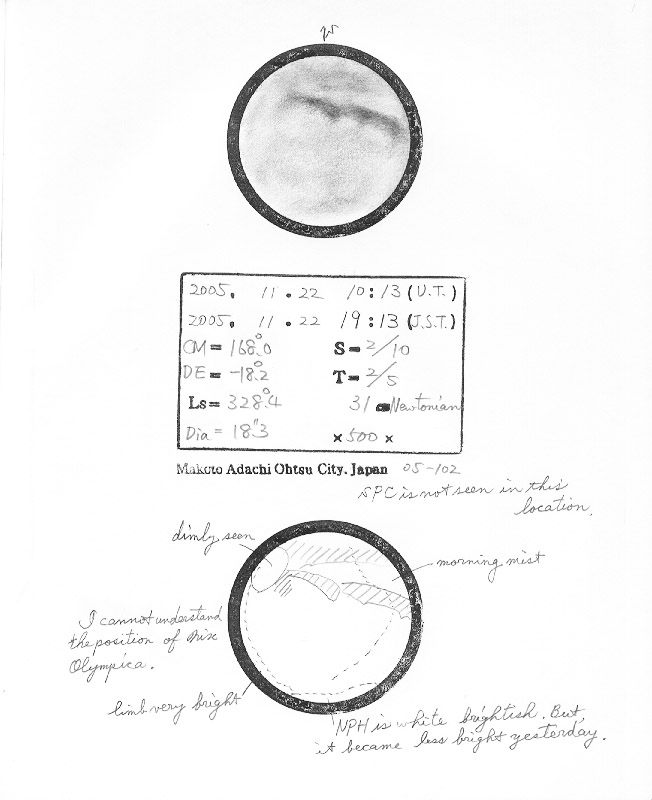 2005. 11.22 10:13 (U.T.)
2005. 11.22 19:13 (J.S.T.)
CM= 168.°0 S= 2/10
DE= -18.°2 T= 2/5
Ls= 328.°4 31 Newtonian
Dia= 18."3 ×500×
Makoto Adachi Ohtsu City. Japan 05-102
SPC is not seen in this
location.
dimly seen
morning mist
I cannot understand
the position of Nix
Olympica.
limb very bright
NPH is white brightish. But,
it became less bright yesterday.